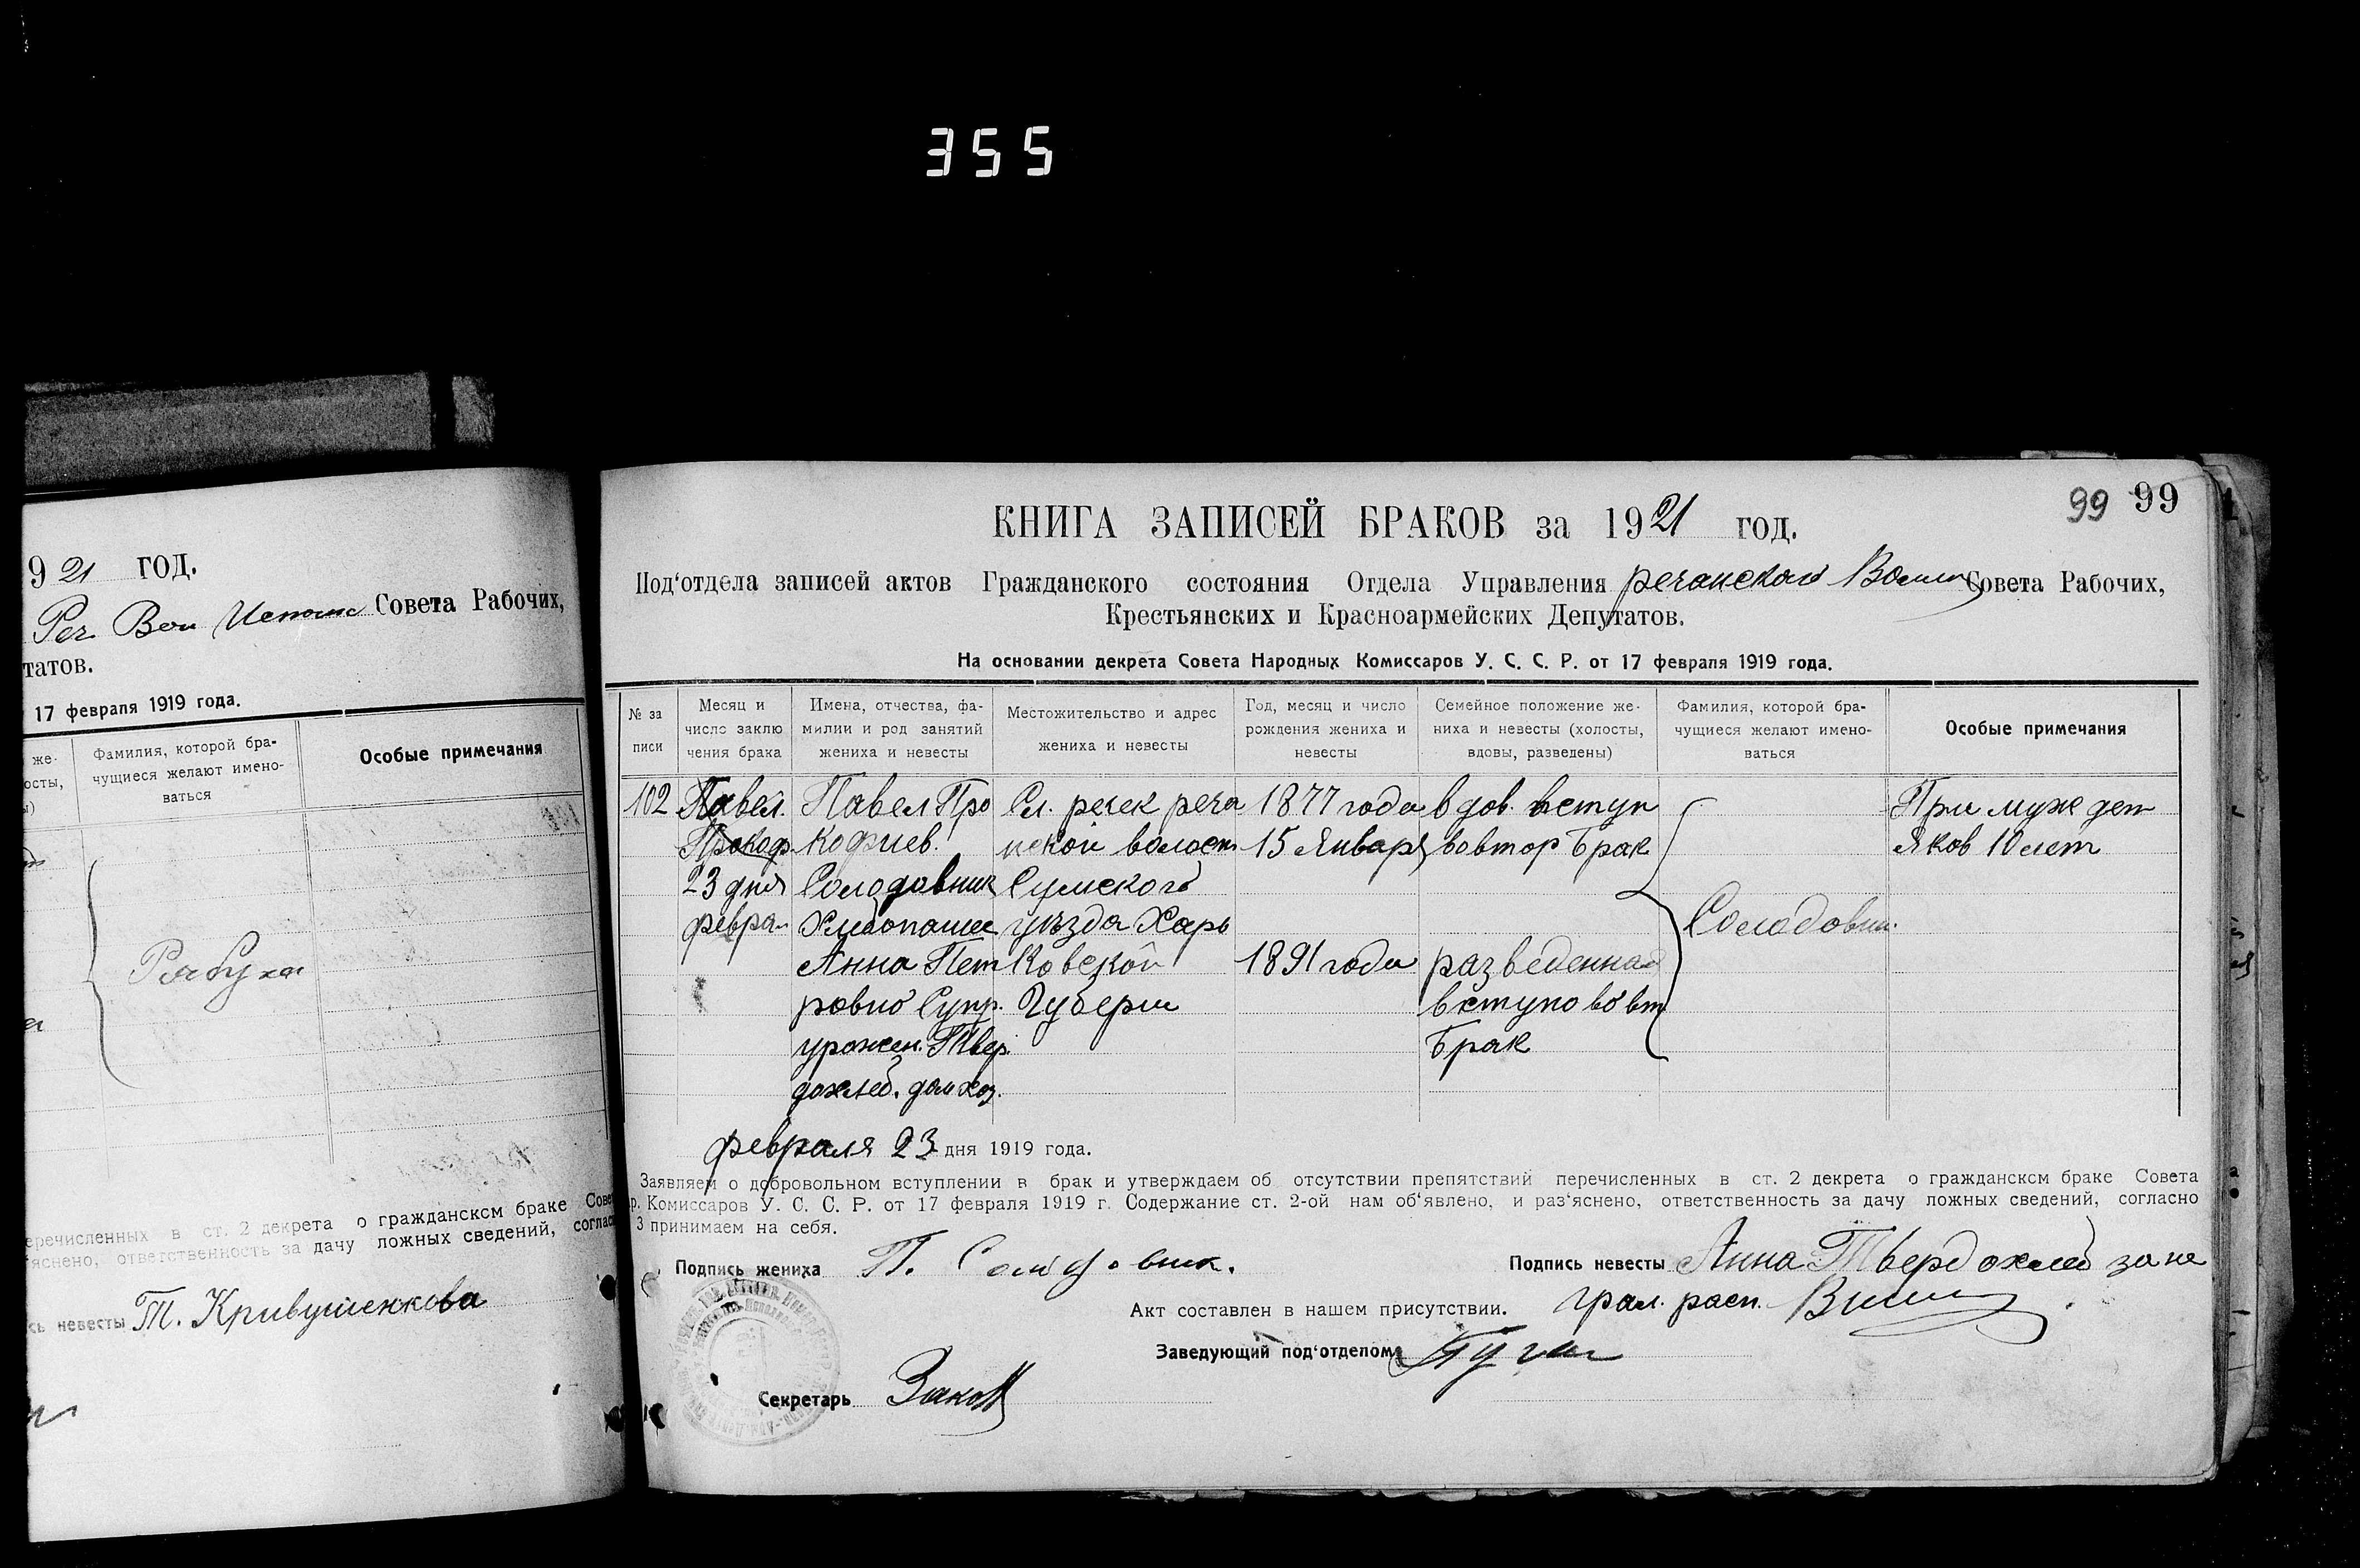 355
921 год.
Рег. Вол Исполк Совета Рабочих,
татов.
17 февраля 1919 года.
же-
осты,
ы)
Фамилия, которой бра-
чущиеся желают имено-
ваться
Особые примечания
Рябуха
еречисленных в ст. 2 декрета о гражданском браке Сове
яснено, ответственность за дачу ложных сведений, соглас
сь невесты Т. Кривушенкова
99 99
КНИГА ЗАПИСЕЙ БРАКОВ за 1921 год.
Под‘отдела записей актов Гражданского состояния Отдела Управления речанского Совета Рабочих,
Крестьянских и Красноармейских Депутатов.
На основании декрета Совета Народных Комиссаров У. С. С. Р. от 17 февраля 1919 года.
№ за
писи
Месяц и
число заклю
чения брака
Имена, отчества, фа-
милии и род занятий
жениха и невесты
Местожительство и адрес
жениха и невесты
Год, месяц и число
рождения жениха и
невесты
Семейное положение же-
ниха и невесты (холосты,
вдовы, разведены)
Фамилия, которой бра-
чущиеся желают имено-
ваться
Особые примечания
102 Павел. Павел Про Сл. речек реча 1877 года вдов. вступ При муж дет
Прокоф. кофиев. нской волост 15 Января вовтор Брак Яков 10 лет
23 дня Солодовник Сумского
Февра. Хлебопашец уъзда Харь Солодовни.
Анна Пет Ковской 1891 года разведенная
ровно Супр. Губерии вступ во вт
урожен. Твер. Брак
дохлеб. дом хоз.
февраля 23 дня 1919 года.
Заявляем о добровольном вступлении в брак и утверждаем об отсутствии препятствий перечисленных в ст. 2 декрета о гражданском браке Совета
р. Комиссаров У. С. С. Р. от 17 февраля 1919 г. Содержание ст. 2-ой нам об‘явлено, и раз‘яснено, ответственность за дачу ложных сведений, согласно
3 принимаем на себя.
Подпись жениха П. Солодовник. Подпись невесты Анна Твердохлеб за не
Акт составлен в нашем присутствии. грам. расп.
Заведующий под‘отделом
Секретарь